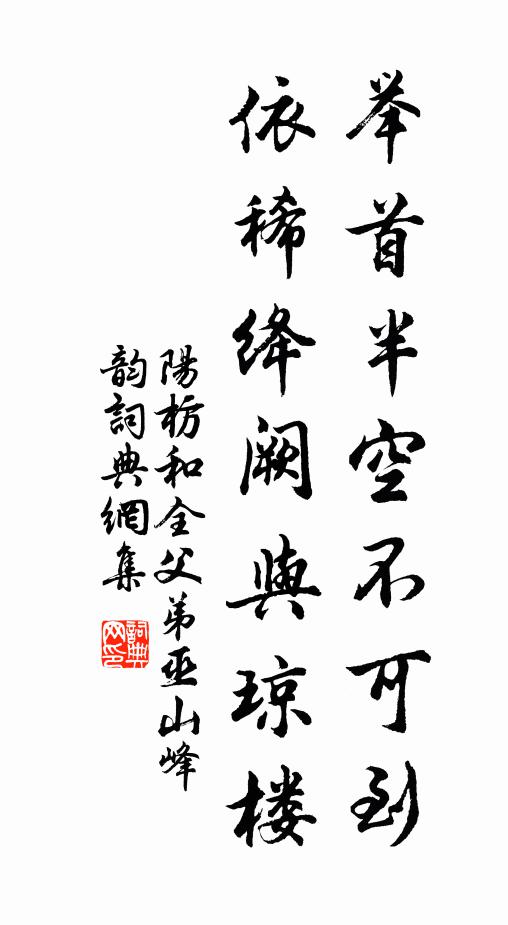 举首半空不可到
依稀绛阙與琼楼
陽枋和全父弟巫山峰
韵詞典網集
詞典
网印